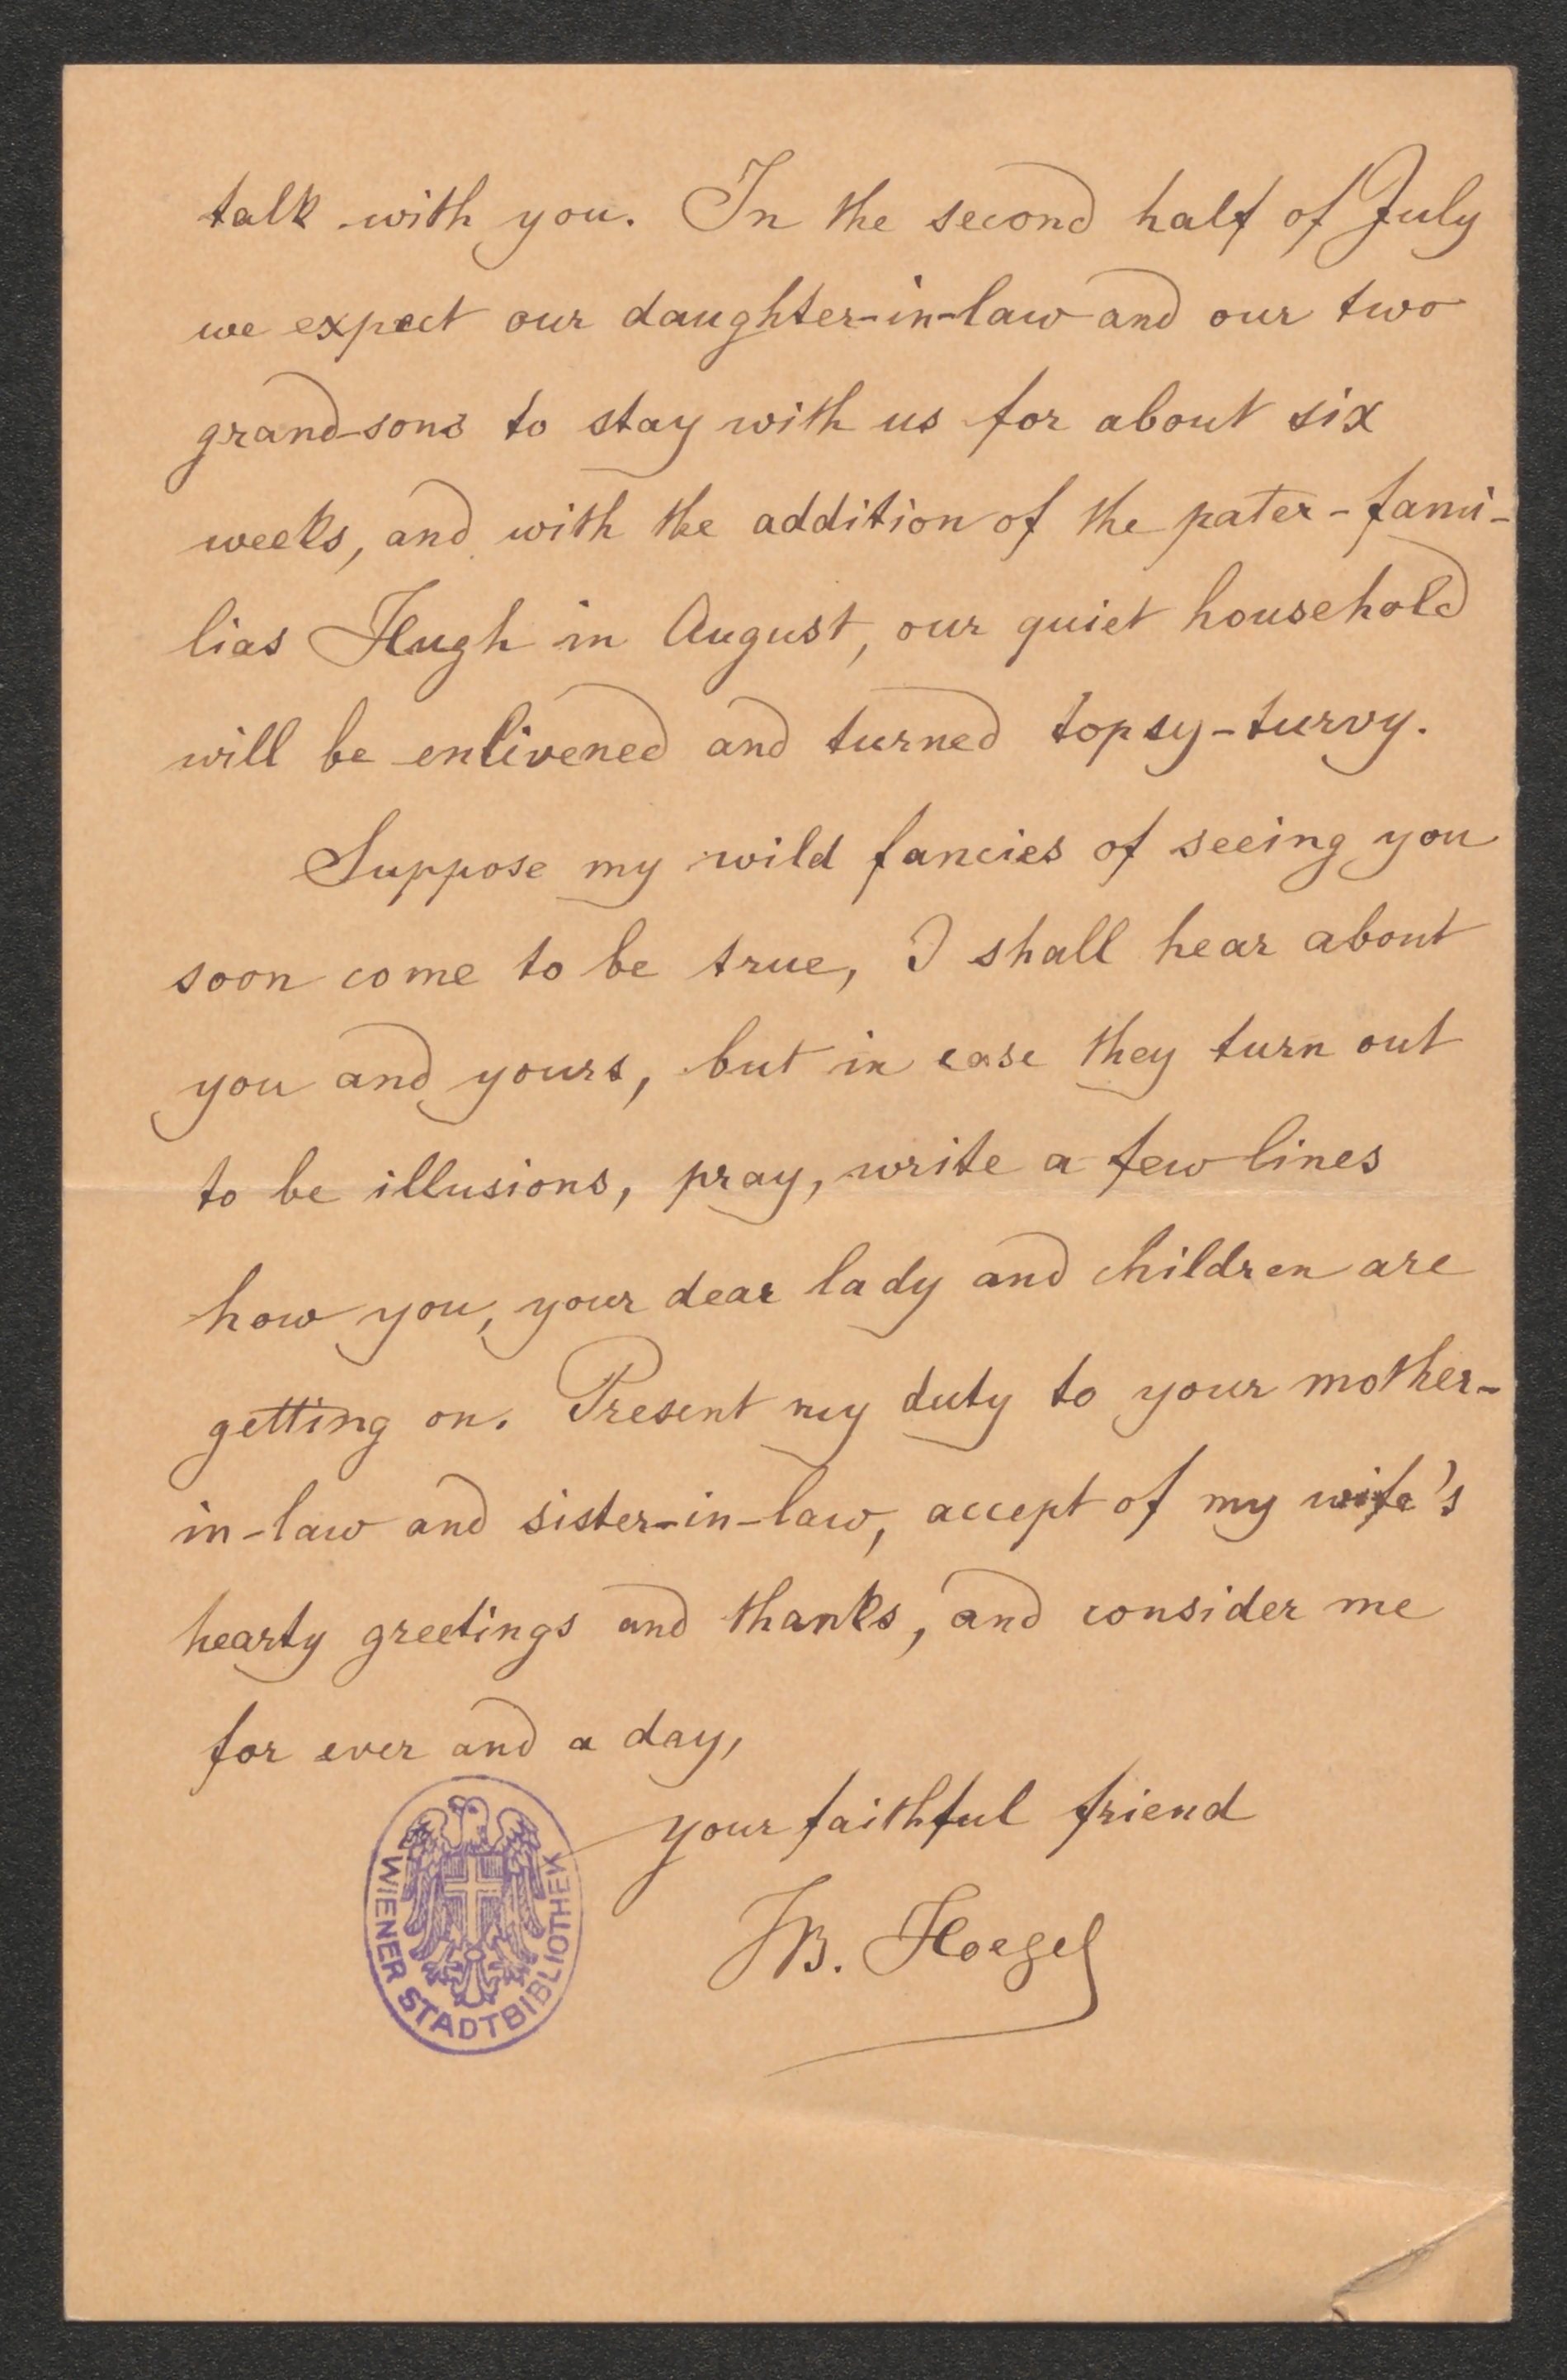 talk with you. In the second half of July
we expect our daughter-in-law and our two
grand-sons to stay with us for about six
weeks, and with the addition of the pater-fami-
lias Hugh in August, our quiet household
will be enlivened and turned topsy-turvy.
Suppose my wild fancies of seeing you
soon come to be true, I shall hear about
you and yours, but in case they turn out
to be illusions, pray, write a few lines
how you, your dear lady and children are
getting on. Present my duty to your mother-
in-law and sister-in-law, accept of my wife's
hearty greetings and thanks, and consider me
for ever and a day,
your faithful friend
JB. Hoegel
WIENER STADTBIBLIOTHEK